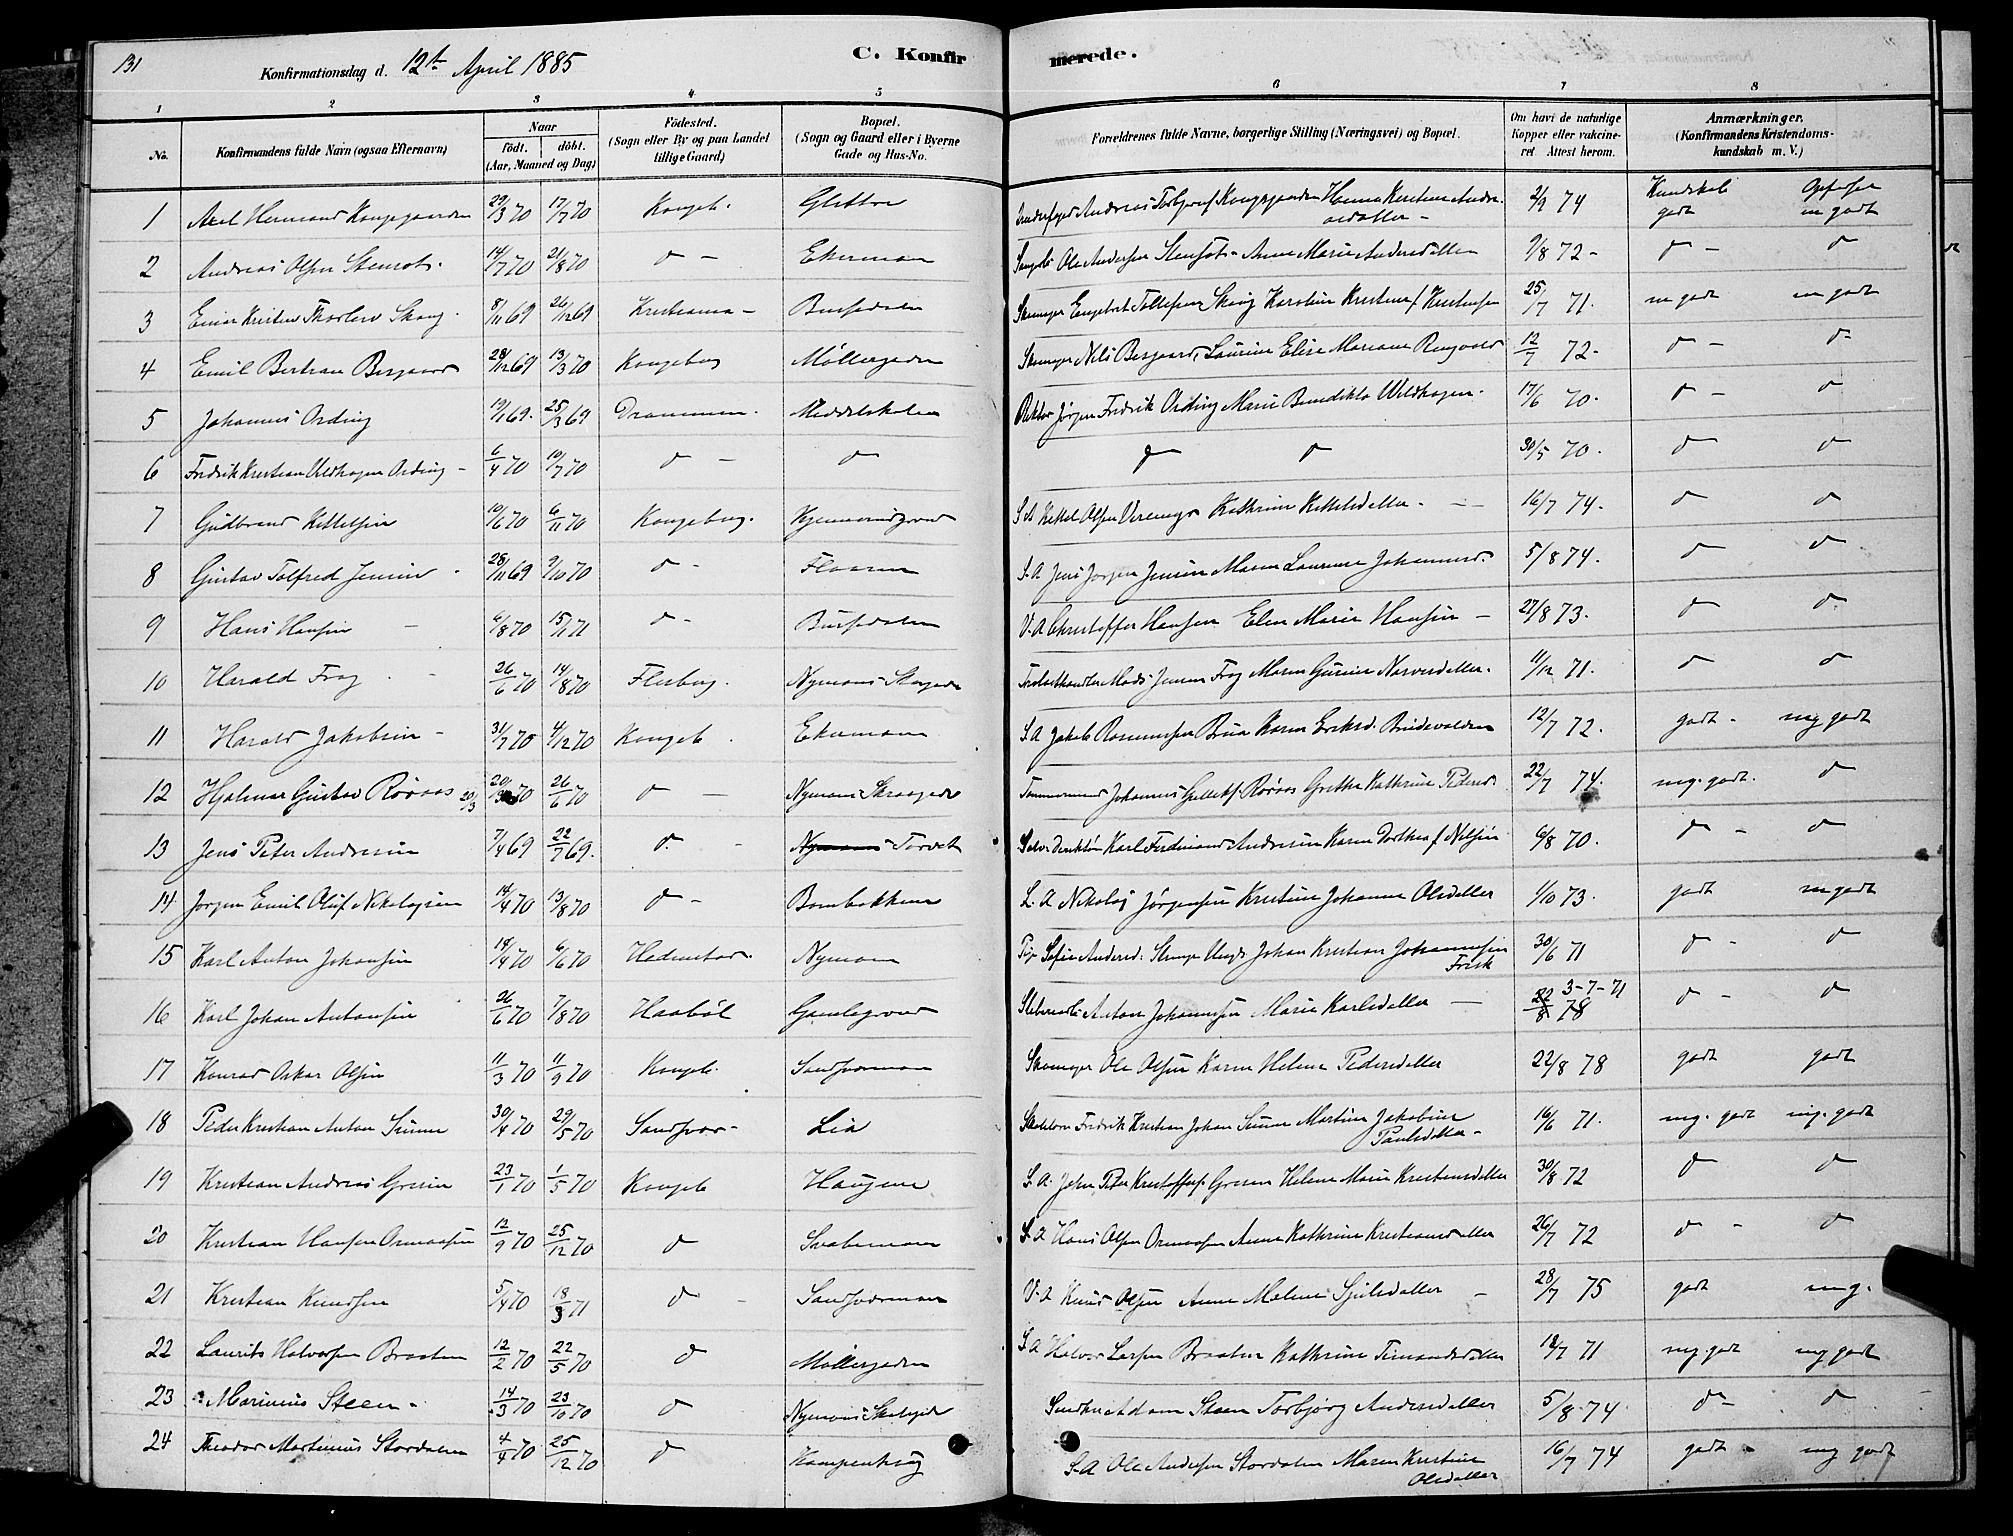 131
Konfirmationsdag d. 12te April 1885
C. Konfirmerede.
1 2 3 4 5 6 7 8
No. Konfirmandens fulde Navn (ogsaa Efternavn) Naar födt. döbt. (Aar, Maaned og Dag) Födested. (Sogn eller By og paa Landet tillige Gaard) Bopæl. (Sogn og Gaard eller i Byerne Gade og Hus-No. Forældrenes fulde Navne, borgerlige Stilling (Næringsvei) og Bopæl. Om havt de naturlige Kopper eller vakcineret Attest herom. Anmærkninger. (Konfirmandens Kristendomskundskab m. V.)
1 Axel Hermand Kongsgaarden 29/3 70 17/7 70 Kongsb. Glittre Andreas Torbjørns. Kongsgaarden Hanna Kristine Andreasdatter - 2/9 74 Kundskab godt Opførsel m godt
2 Andreas Olsen Stensrot. 14/7 70 21/8 70 d - Ekermoen Ole Andersen Anne Marie Andersdatter 9/8 72 - d - d
3 Einar Kristen Thorlew Skoug 8/11 69 26/12 69 Kristiania - Bussedalen Skomager Engebret Tollefsen Skoug Karoline Kristine f Kristensen 25/7 71. m godt m godt
4 Emil Bertran Bergaard 28/12 69 13/3 70 Kongsberg Møllergaden Skomager Nils Bergaard, Laurine Elise Mariane Ringvold 12/7 72 - d - d
5 Johannes Ording 19/1 69. 25/3 69 Drammen. Middelskolen Rektor Jørgen Fredrik Ording Marie Benedikta Uldhagen. 17/6 70. d - d
6 Fredrik Kristian Uldhagen Ording - 6/4 70 10/7 70 d - d d d 30/5 70. d d
7 Gudbrand Kittelsen 10/6 70 6/11 70 Kongsberg. S A Kittel Olsen Kathrine Kittelsdatter. - 16/7 74. d d
8 Gustav Tolfred Jensen 28/11 69 9/10 70 d - Flaaten S. A Jens Jørgen Jensen Maren Laurense Johannesd. 5/8 74. d d
9 Hans Hansen 6/8 70 15/1 71 d - Bussedalen V. A Christoffer Hansen Elen Marie Hansen - 27/8 73. d d
10 Harald Frog 26/6 70 14/8 70 Flesberg. Nymoens Mads Jensen Frog Maren Gurine Narvesdatter. 11/12 71. d d
11 Harald Jakobsen - 31/7 70 4/12 70 Kongsb. Ekermoen S. A Jakob Rasmussen Brua Karen Eriksd. 12/7 72. godt - mg godt
12 Hjalmar Gustav Røraas 20/3 20/3 70 26/6 70 d - Nymoens Johannes Røraas Grethe Kathrine Pedersd. 22/7 74. mg. godt. d
13 Jens Peter Andresen 7/4 69 22/7 69. d. - Nymoens Torvet Karl Ferdinand Andresen Karen Dorthea f Nilsen 6/8 70. d - d
14 Jørgen Emil Oluf Nikolajsen 14/4 70 13/8 70 d - Bombakken S. A Nikolaj Jørgensen Kristine Johanne Olsdatter 1/10 73. godt m godt
15 Karl Anton Johansen 18/4 70 6/6 70 Hedenstad. Nymoen Pige Sofie Andersd. Johan Kristian Johannesen Frisk 30/6 71 d - d
16 Karl Johan Antonsen 26/6 70 7/8 70 Haabøl Gamlegrend Anton Johannesen Marie Karlsdatter - 22/8 78 3-7-71 d - d
17 Konrad Oskar Olsen 11/3 70 11/9 70 Kongsb. Sandsværmoen Skomager Ole Olsen Karen Helene Pedersdatter 22/8 78 godt godt
18 Peder Kristian Anton Sinne 30/4 70 29/5 70 Sandsvær - Lia Fredrik Kristian Johan Sinne Martine Jakobine Paulsdatter - 16/6 71. mg. godt mg. godt
19 Kristian Andreas Gresen 23/1 70 1/5 70 Kongsb Haugen S. A. John Peter Kristoffers. Gresen Helene Marie Kristensdatter 30/8 72 d d
20 Kristian Hansen Ormaasen 12/9 70 25/12 70 d Svabemoen S A Hans Olsen Ormaasen Anne Kathrine Kristiansdatter 26/7 72 d - d
21 Kristian Knudsen 5/4 70 18/3 71 d - Sandsværmoen V. A Knud Olsen Anne Malene Gjulsdatter - 28/7 75 godt mg.
22 Laurits Halvorsen Braaten 12/2 70 22/5 70 d Møllergaden S A Halvor Larsen Braaten Kathrine 18/7 71 mg godt mg godt
23 Marinius Steen - 14/3 70 23/10 70 d Nymoens Adam Steen Torbjørg Andersdatter 5/8 74 d - d
24 Theodor Martinius Stordalen 4/4 70 25/12 70 d Kampenhaug S. A Ole Andersen Stordalen Maren Kristine Olsdatter 16/7 74 godt - mg godt